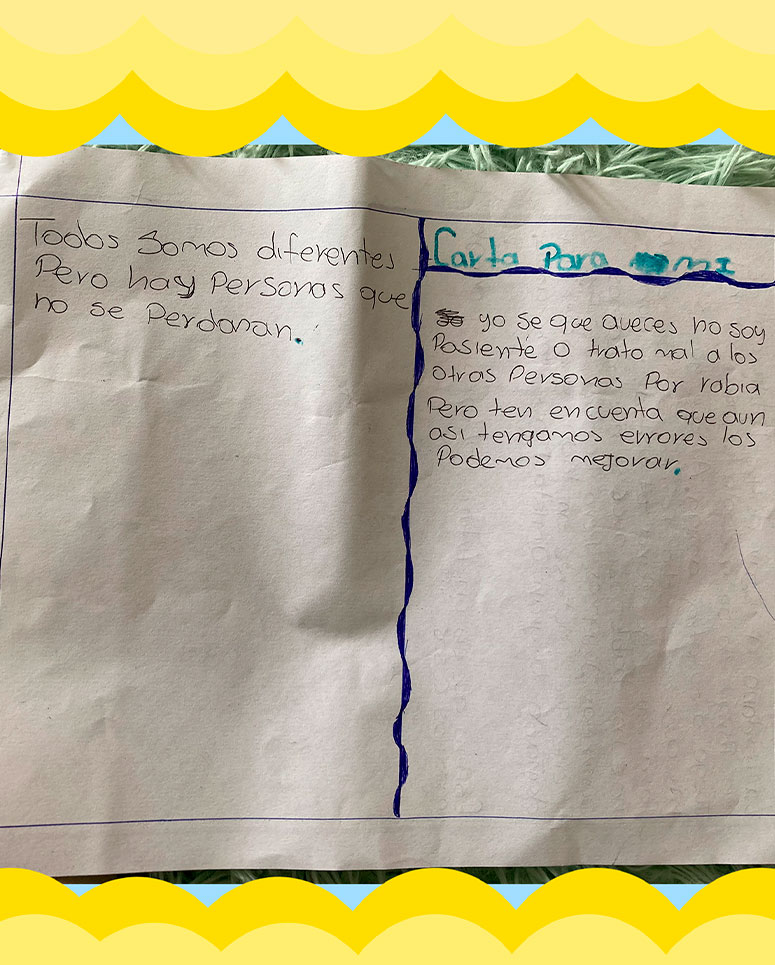 Todos somos diferentes
Pero hay Personas que
no se Perdonan.
Carta Para mi
yo se que aveces no soy
Pasiente o trato mal a los
otras Personas Por rabia
Pero ten encuenta que aun
asi tengamos errores los
Podemos mejorar.